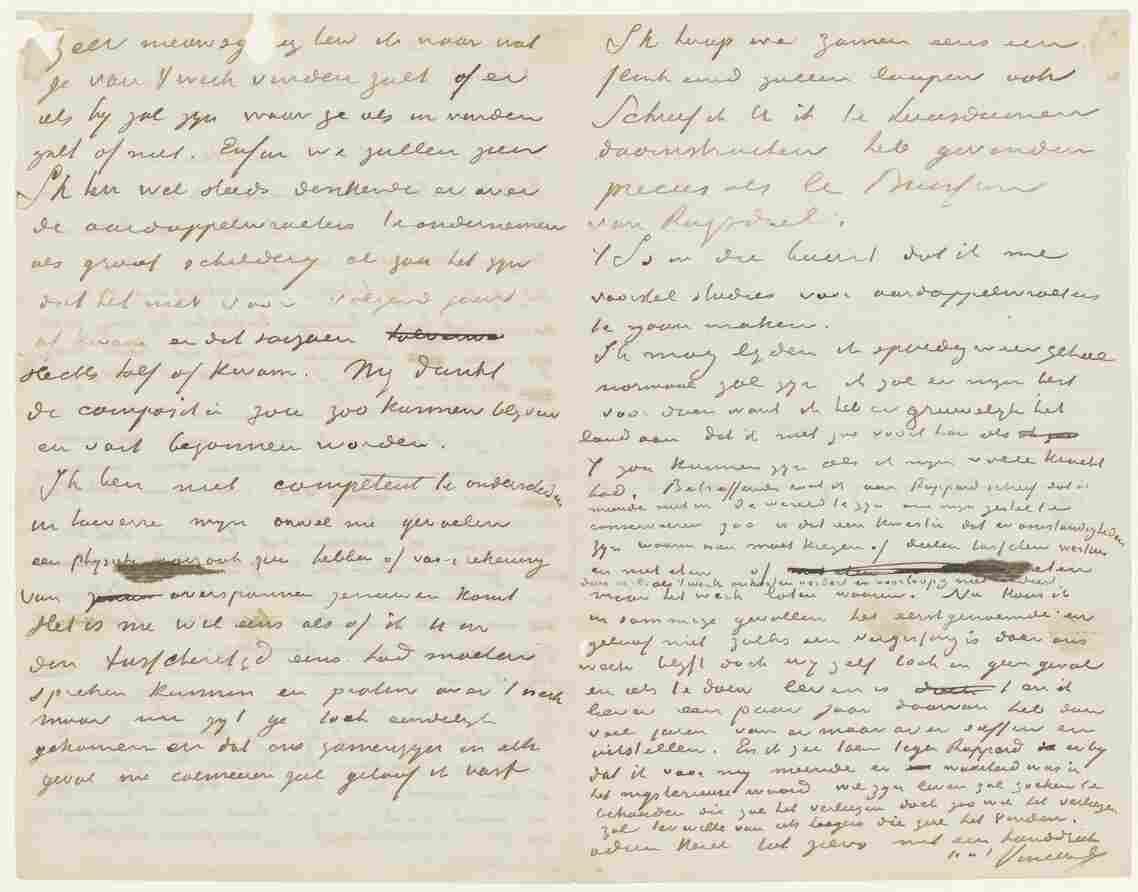 Zeer nieuwsgierig ben ik naar wat
ge van 't werk vinden zult of er
iets bij zal zijn waar ge iets in vinden
zult of niet. Enfin we zullen zien
Ik ben wel steeds denkende er over
de aardappelrooiers te ondernemen
als groot schilderij al zou het zijn
dat het niet voor volgend jaar
af kwam en dit najaar
slechts half of kwam. Mij dunkt
de compositie zou zoo kunnen blijven
en vast begonnen worden.
Ik ben niet competent te onderscheiden
in hoeverre mijn onwel me gevoelen
een physieke oorzaak zou hebben of voor rekening
van overspannen zenuwen komt
Het is me wel eens als of ik U in
den tusschentijd eens had moeten
spreken kunnen en praten over 't werk
maar nu zijt ge toch eindelijk
gekomen en dat ons zamenzijn in elk
geval me calmeeren zal geloof ik vast
Ik hoop we zamen eens een
flink eind zullen loopen ook
Schreef ik U ik te Loosduinen
doornstruiken heb gevonden
precies als le Buisson
van Ruysdael.
't Is in die buurt dat ik me
voorstel studies voor aardappelrooiers
te gaan maken.
Ik mag lijden ik spoedig weer geheel
normaal zal zijn ik zal er mijn best
voor doen want ik heb er gruwelijk het
land aan dat ik niet zoo voort kan als
't zou kunnen zijn als ik mijn volle kracht
had. Betreffende wat ik aan Rappard schreef dat ik
meende niet in de wereld te zijn om mijn gestel te
conserveeren zoo is dat een kwestie dat er omstandigheden
zijn waarin men moet kiezen of deelen tusschen werken
en niet eten of eten
maar het werk laten varen. Nu kies ik
in sommige gevallen het eerstgenoemde en
geloof niet zulks een vergissing is daar ons
werk blijft doch wij zelf toch in geen geval
en iets te doen leven is en ik
liever een paar jaar daarvan heb dan
veel jaren van er maar over suffen en
uitstellen. En ik zei toen tegen Rappard er bij
dat ik voor mij meende er waarheid was in
het mysterieuse woord wie zijn leven zal zoeken te
behouden die zal het verliezen doch zoo wie het verliezen
zal ter wille van iets hoogers die zal het vinden.
adieu kerel tot ziens met een handdruk
t. à t. Vincent